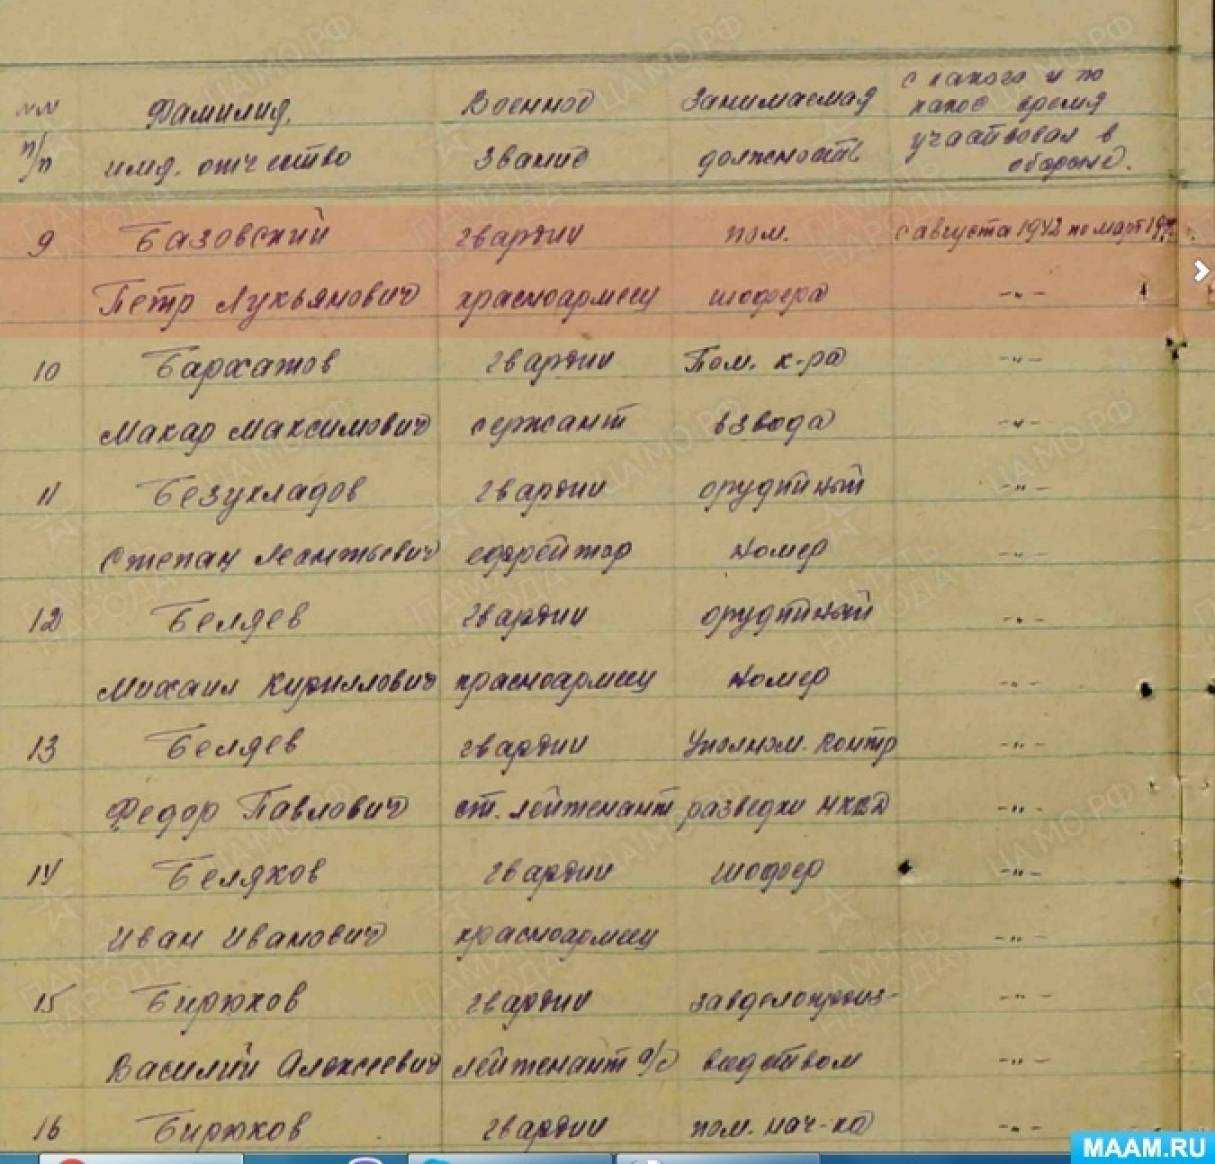 с какого и по
№№ Фамилия, Военное Занимаемая какое время
п/п имя, отчество звание должность участвовал в
обороне.
9 Базовский гвардии пом. с августа 1942 по март 19
Петр Лукьянович красноармеец шофера -"-
10 Бархатов гвардии Пом. к-ра -"-
Макар Максимович сержант взвода -"-
11 Безукладов гвардии орудийный -"-
Степан Леонтьевич ефрейтор номер -"-
12 Беляев гвардии орудийный -"-
Михаил Кириллович красноармеец номер -"-
13 Беляев гвардии Уполном. контр -"-
Федор Павлович ст. лейтенант разведки НКВД -"-
14 Беляков гвардии шофер -"-
Иван Иванович красноармеец -"-
15 Бирюков гвардии завделопроиз- -"-
Василий Алексеевич лейтенант а/с водством -"-
16 Бирюков гвардии пом. нач-ка -"-
MAAM.RU